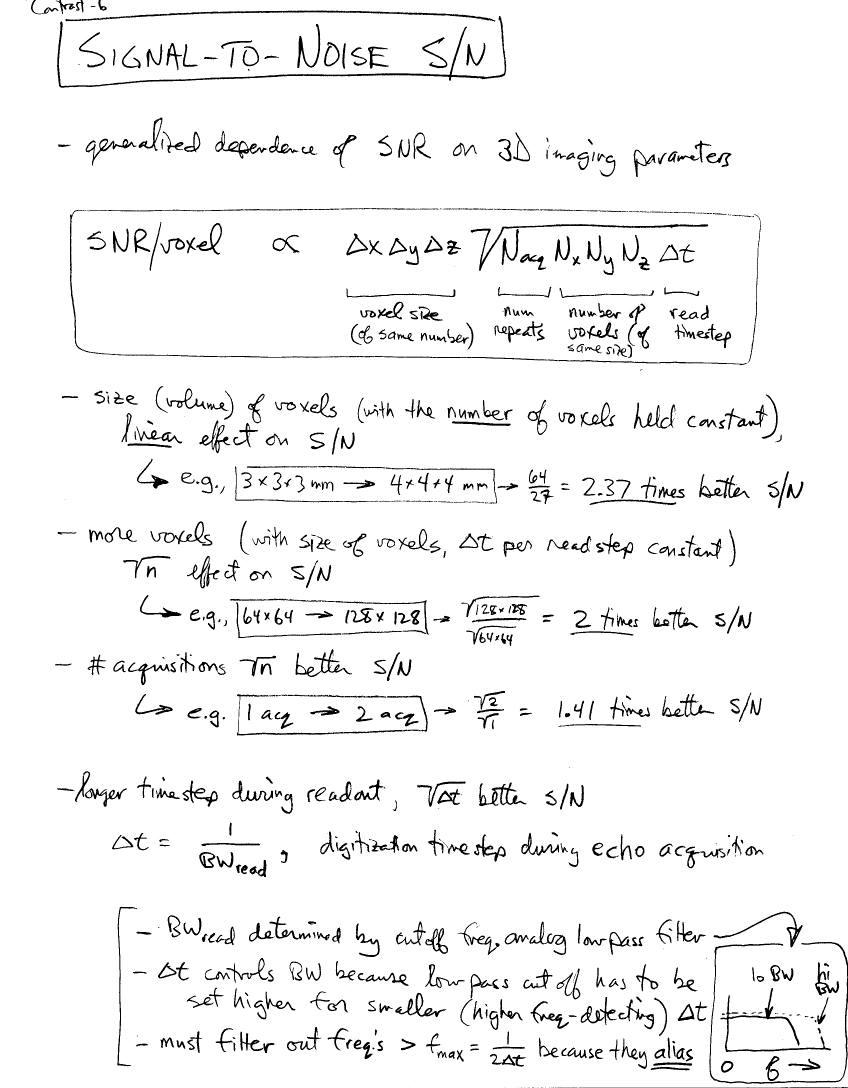 Contrast-6
SIGNAL-TO-NOISE S/N
- generalized dependence of SNR on 3D imaging parameters
SNR/voxel ∝ Δx Δy Δz √(N_acq N_x N_y N_z Δt)
voxel size (of same number)
num repeats
number of voxels (of same size)
read timestep
- size (volume) of voxels (with the number of voxels held constant),
linear effect on S/N
↳ e.g., 3×3×3 mm → 4×4×4 mm → 64/27 = 2.37 times better S/N
- more voxels (with size of voxels, Δt per read step constant)
√n effect on S/N
↳ e.g., 64×64 → 128×128 → √128×128/√64×64 = 2 times better S/N
- # acquisitions √n better S/N
↳ e.g. 1 acq → 2 acq → √2/√1 = 1.41 times better S/N
- longer timestep during readout, √Δt better S/N
Δt = 1/BW_read, digitization timestep during echo acquisition
- BW_read determined by cutoff freq. analog low pass filter
- Δt controls BW because low pass cut off has to be
set higher for smaller (higher freq-detecting) Δt
- must filter out freq's > f_max = 1/2Δt because they alias
lo BW
hi BW
0 f →